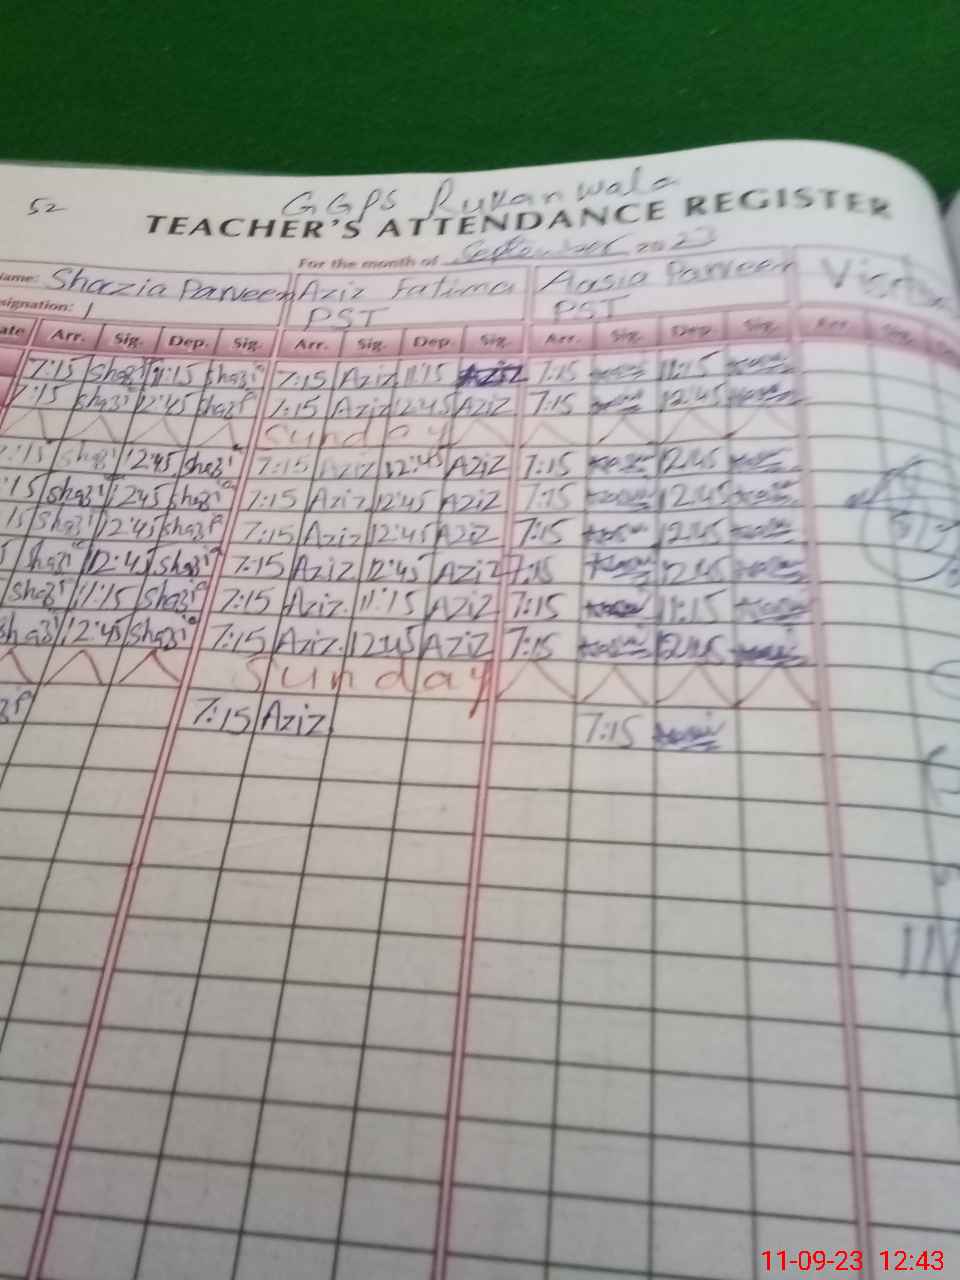 52 GGPS Rukanwala
TEACHER'S ATTENDANCE REGISTER
For the month of September 2023
ame: Shazia Parveen Aziz Fatima Aasia Parveen
signation: PST PST
ate Arr. Sig. Dep. Sig. Arr. Sig. Dep. Sig. Arr. Sig. Dep. Sig. Arr. Sig.
7:15 Shazi 11:15 Shazi 7:15 Aziz 11:15 Aziz 7:15 11:15
7:15 Shazi 12:45 Shazi 7:15 Aziz 12:45 Aziz 7:15 12:45
Sunday
7:15 Shazi 12:45 Shazi 7:15 Aziz 12:45 Aziz 7:15 12:45
15 Shazi 12:45 Shazi 7:15 Aziz 12:45 Aziz 7:15 12:45
15 Shazi 12:45 Shazi 7:15 Aziz 12:45 Aziz 7:15 12:45
Shazi 12:45 Shazi 7:15 Aziz 12:45 Aziz 7:15 12:45
Shazi 11:15 Shazi 7:15 Aziz 11:15 Aziz 7:15 11:15
Shazi 12:45 Shazi 7:15 Aziz 12:45 Aziz 7:15 12:45
Sunday
7:15 Aziz 7:15
11-09-23 12:43